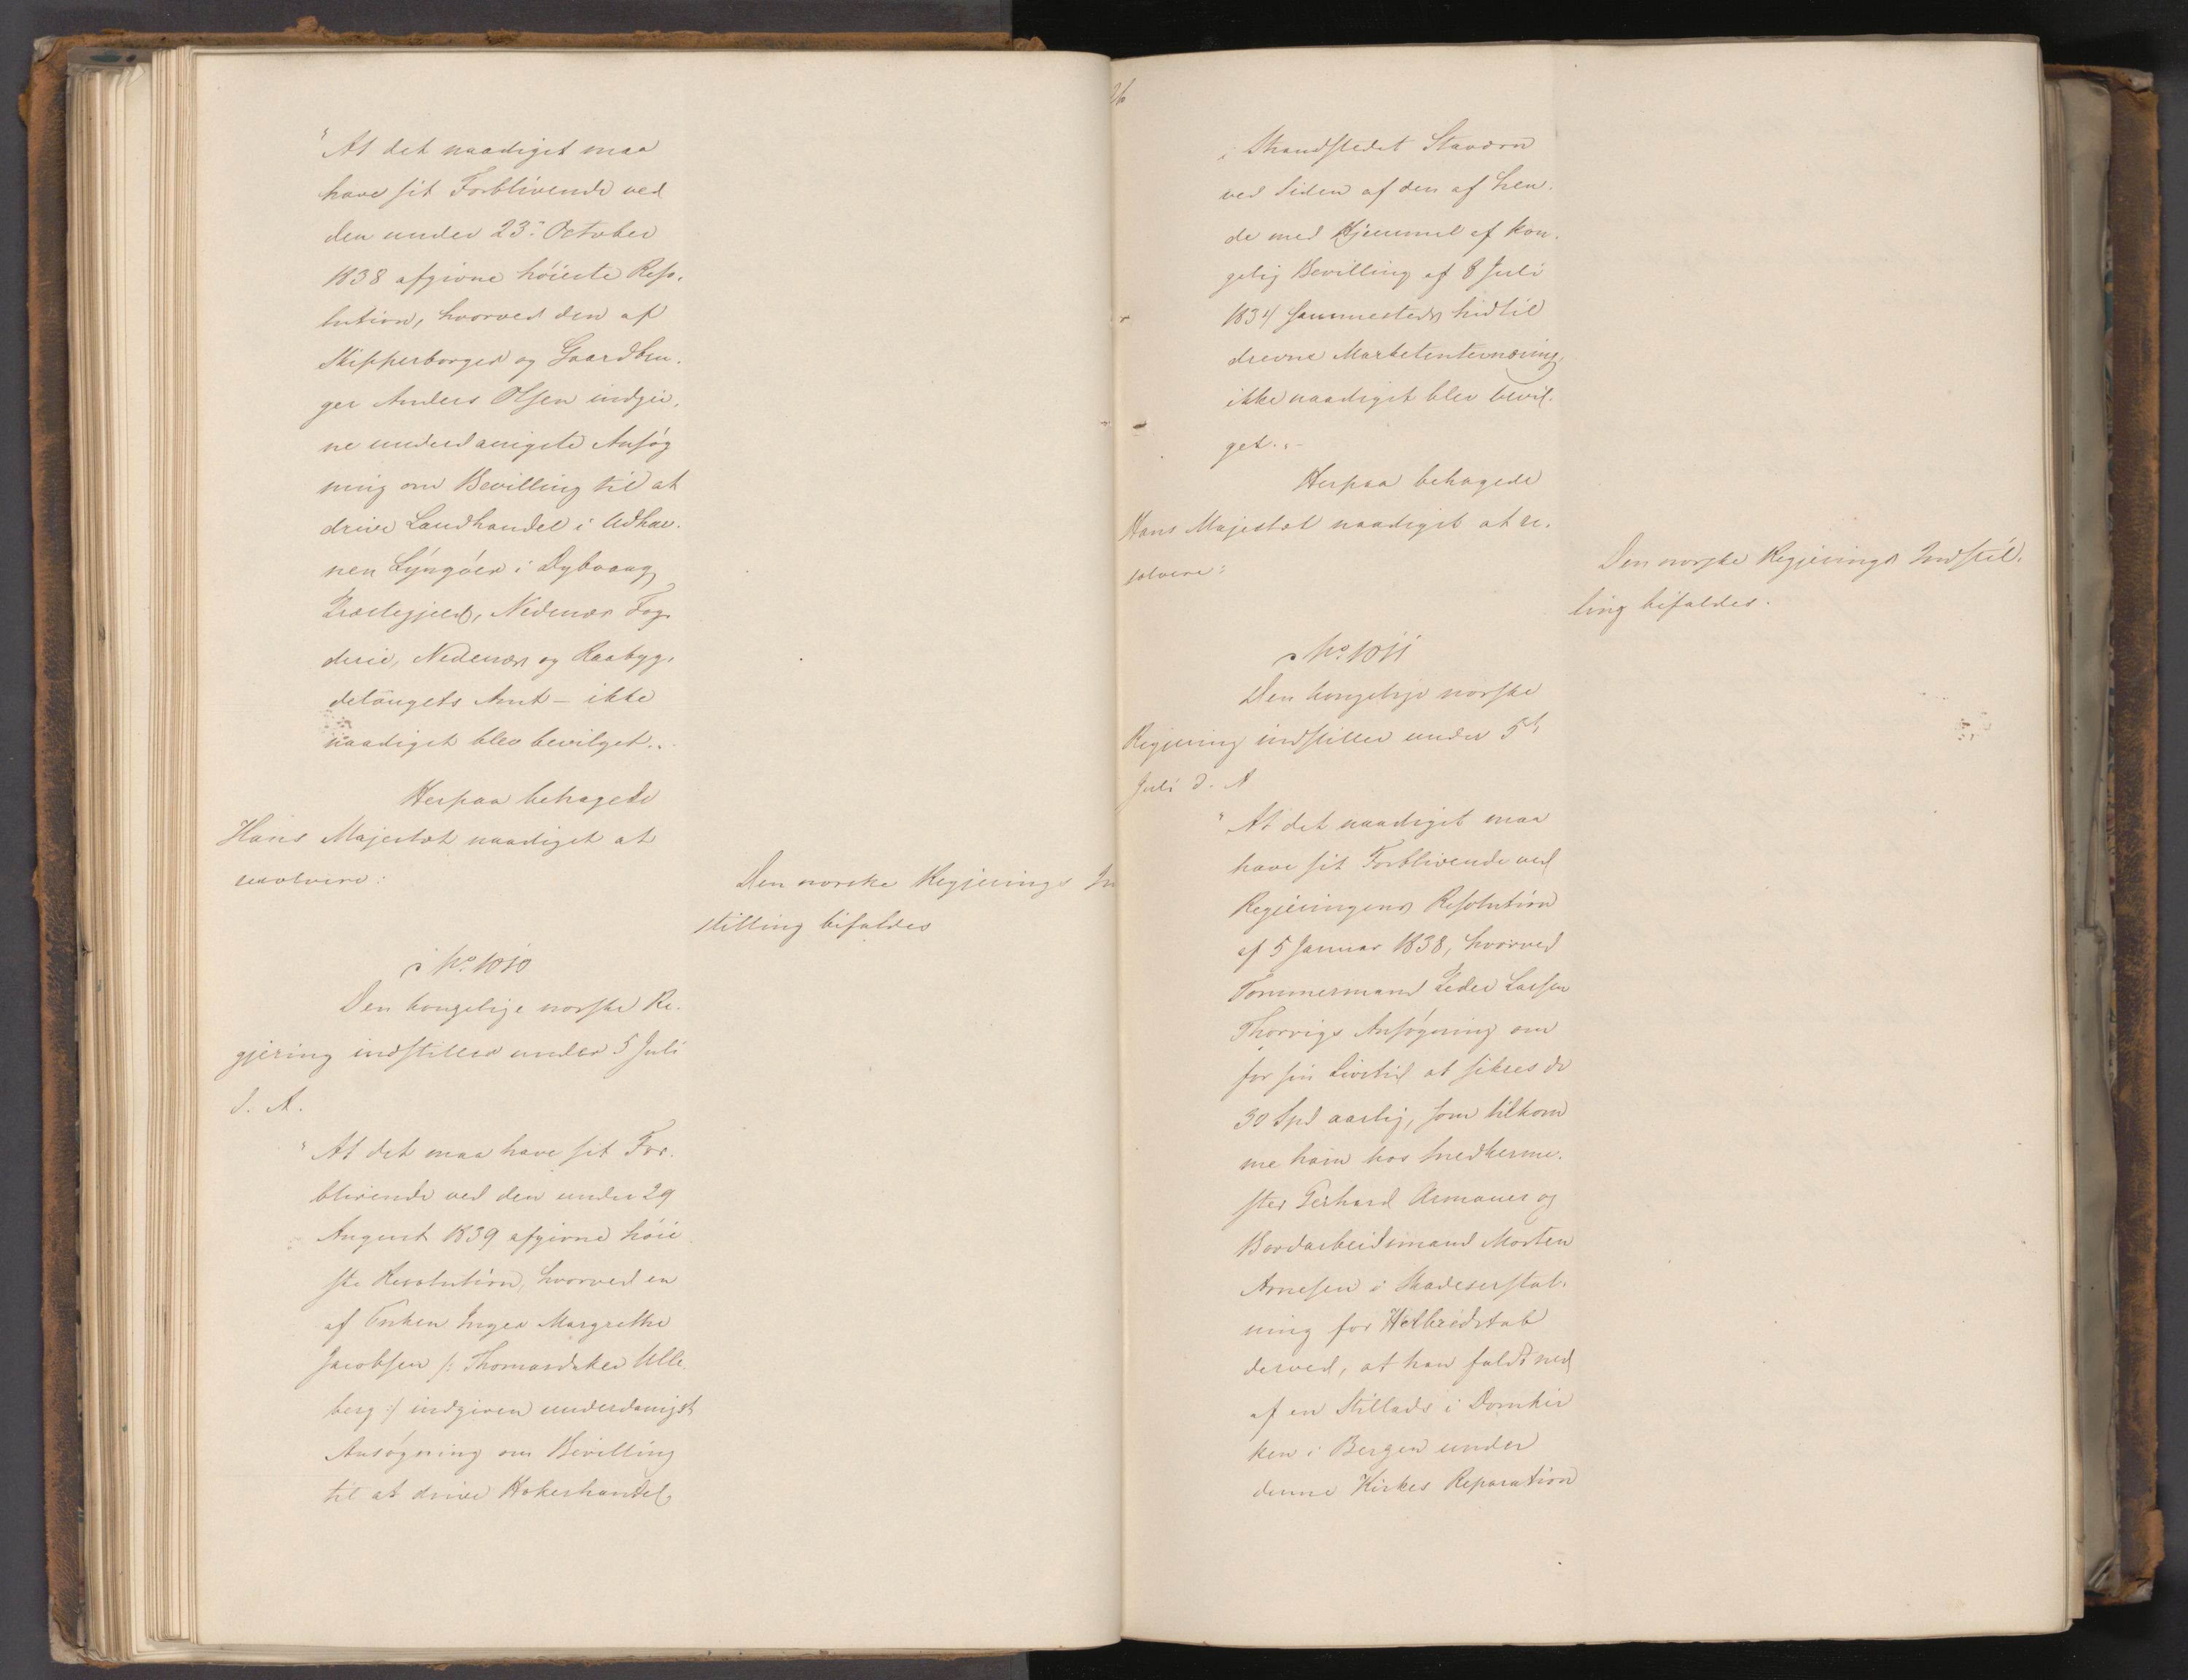 "At det naadigst maa
have sit Forblivende ved
den under 23: October
1838 afgivne höieste Reso-
lution, hvorved den af
Skipperborger og Gaardbru-
ger Anders Olsen indgiv-
ne underdanigste Ansøg
ning om Bevilling til at
drive Landhandel i Udhav-
nen Lyngöer i Dybvaag
Præstegjeld, Nedenæs Fog-
derie, Nedenæs og Raabyg-
delaugets Amt - ikke
naadigst blev bevilget.."
Herpaa behagede
Hans Majestæt naadigst at
resolvere:
Den norske Regjerings In
stilling bifaldes
No. 1010
Den kongelige norske Re-
gjering indstiller under 5 Juli
d. A.
"At det maa have sit For-
blivende ved den under 29
August 1839 afgivne höie
ste Resolution, hvorved en
af Enken Inger Margrethe
Jacobsen /: Thomasdatter Ulle
berg :/ indgiven underdanigst
Ansøgning om Bevilling
til at drive Høkerhandel,
26
i Strandstedet Stavern
ved Siden af den af hen-
de med Hjemmel af kon-
gelig Bevilling af 8 Juli
1834 sammesteds hidtil
drevne Marketenternæring,
ikke naadigst blev bevil-
get."
Herpaa behagede
Hans Majestæt naadigst at re-
solvere:
Den norske Regjerings Indstil-
ling bifaldes.
No. 1011
Den kongelige norske
Regjering indstiller under 5te
Juli d. A
"At det naadigst maa
have sit Forblivende ved
Regjeringens Resolution
af 5 Januar 1838, hvorved
Tømmermand Peder Larsen
Thorvigs Ansøgning om
for sin Livstid at sikres de
30 Spd aarlig, som tilkom
me ham hos Snedkerme-
ster Gerhard Armauer og
Bordarbeidsmand Morten
Arnesen i Skadeserstat-
ning for Helbredstab
derved, at han faldt ned
af en Stillads i Domkir
ken i Bergen under
denne Kirkes Reparation